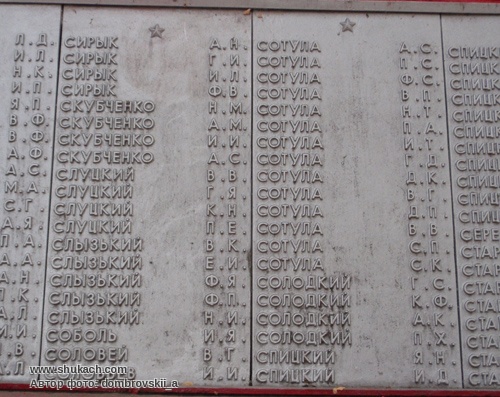 Л.Д.
И.Л.
Н.К.
И.П
Я.П.
В.Ф.
В.Ф
А.Ф.
А.С.
М.А.
С.Г.
А.Я.
П.А.
А.А.
А.Н.
П.К.
А.Л
И.И
А.Л
СИРЫК А.Н.
СИРЫК Г.И
СИРЫК И.Л.
СИРЫК Ф.В
СКУБЧЕНКО Н.М.
СКУБЧЕНКО А.М.
СКУБЧЕНКО И.И
СКУБЧЕНКО А.С.
СЛУЦКИЙ В.В
СЛУЦКИЙ Г.Я.
СЛУЦКИЙ К.Н.
СЛУЦКИЙ П.Е
СЛЫЗЬКИЙ В.К.
СЛЫЗЬКИЙ Е.И.
СЛЫЗЬКИЙ Ф.Я
СЛЫЗЬКИЙ Ф.П.
СЛЫЗЬКИЙ Н.И.
СОБОЛЬ И.Я.
СОЛОВЕЙ В.Г
СОЛОВЬЕВ И.И
СОТУЛА А.С.
СОТУЛА П.С.
СОТУЛА Ф.С.
СОТУЛА В.П.
СОТУЛА Н.Т
СОТУЛА П.А.
СОТУЛА И.Т
СОТУЛА Г.Д.
СОТУЛА Д.К.
СОТУЛА В.Г.
СОТУЛА Д.П.
СОТУЛА В.В
СОТУЛА С.П.
СОТУЛА С.К.
СОЛОДКИЙ Г.С.
СОЛОДКИЙ К.Ф.
СОЛОДКИЙ А.К.
СОЛОДКИЙ П.Х
СПИЦКИЙ Я.Н.
СПИЦКИЙ И.Д
СПИЦК
СПИЦК
СПИЦК
СПИЦК
СПИЦК
СПИЦК
СПИЦК
СПИЦК
СПИЦК
СПИЦК
СПИЦК
СЕРЕ
СТАР
СТАР
СТАР
СТАР
СТА
СТА
СТА
СТА
www.shukach.com
Автор фото: dombrovskii_a